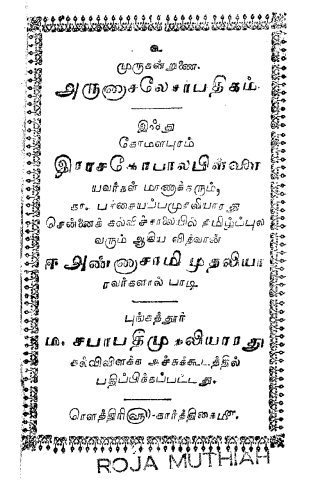 உ
முருகன்றுணை.
அருணாசலேசர்பதிகம்.
இஃது
கோமளபுரம்
இராசகோபாலபிள்ளை
யவர்கள் மாணாக்கரும்,
கா. பர்சையப்பமுதலியாரது
சென்னைக் கல்விச்சாலையில் தமிழ்ப்புல
வரும் ஆகிய வித்வான்
ஈ அண்ணாசாமி முதலியா
ரவர்களால் பாடி
புங்கத்தூர்
ம. சபாபதிமுதலியாரது
கல்விவிளக்க அச்சுக்கூடத்தில்
பதிப்பிக்கப்பட்டது.
ரௌத்திரி௵-கார்த்திகை௴.
ROJA MUTHIAH